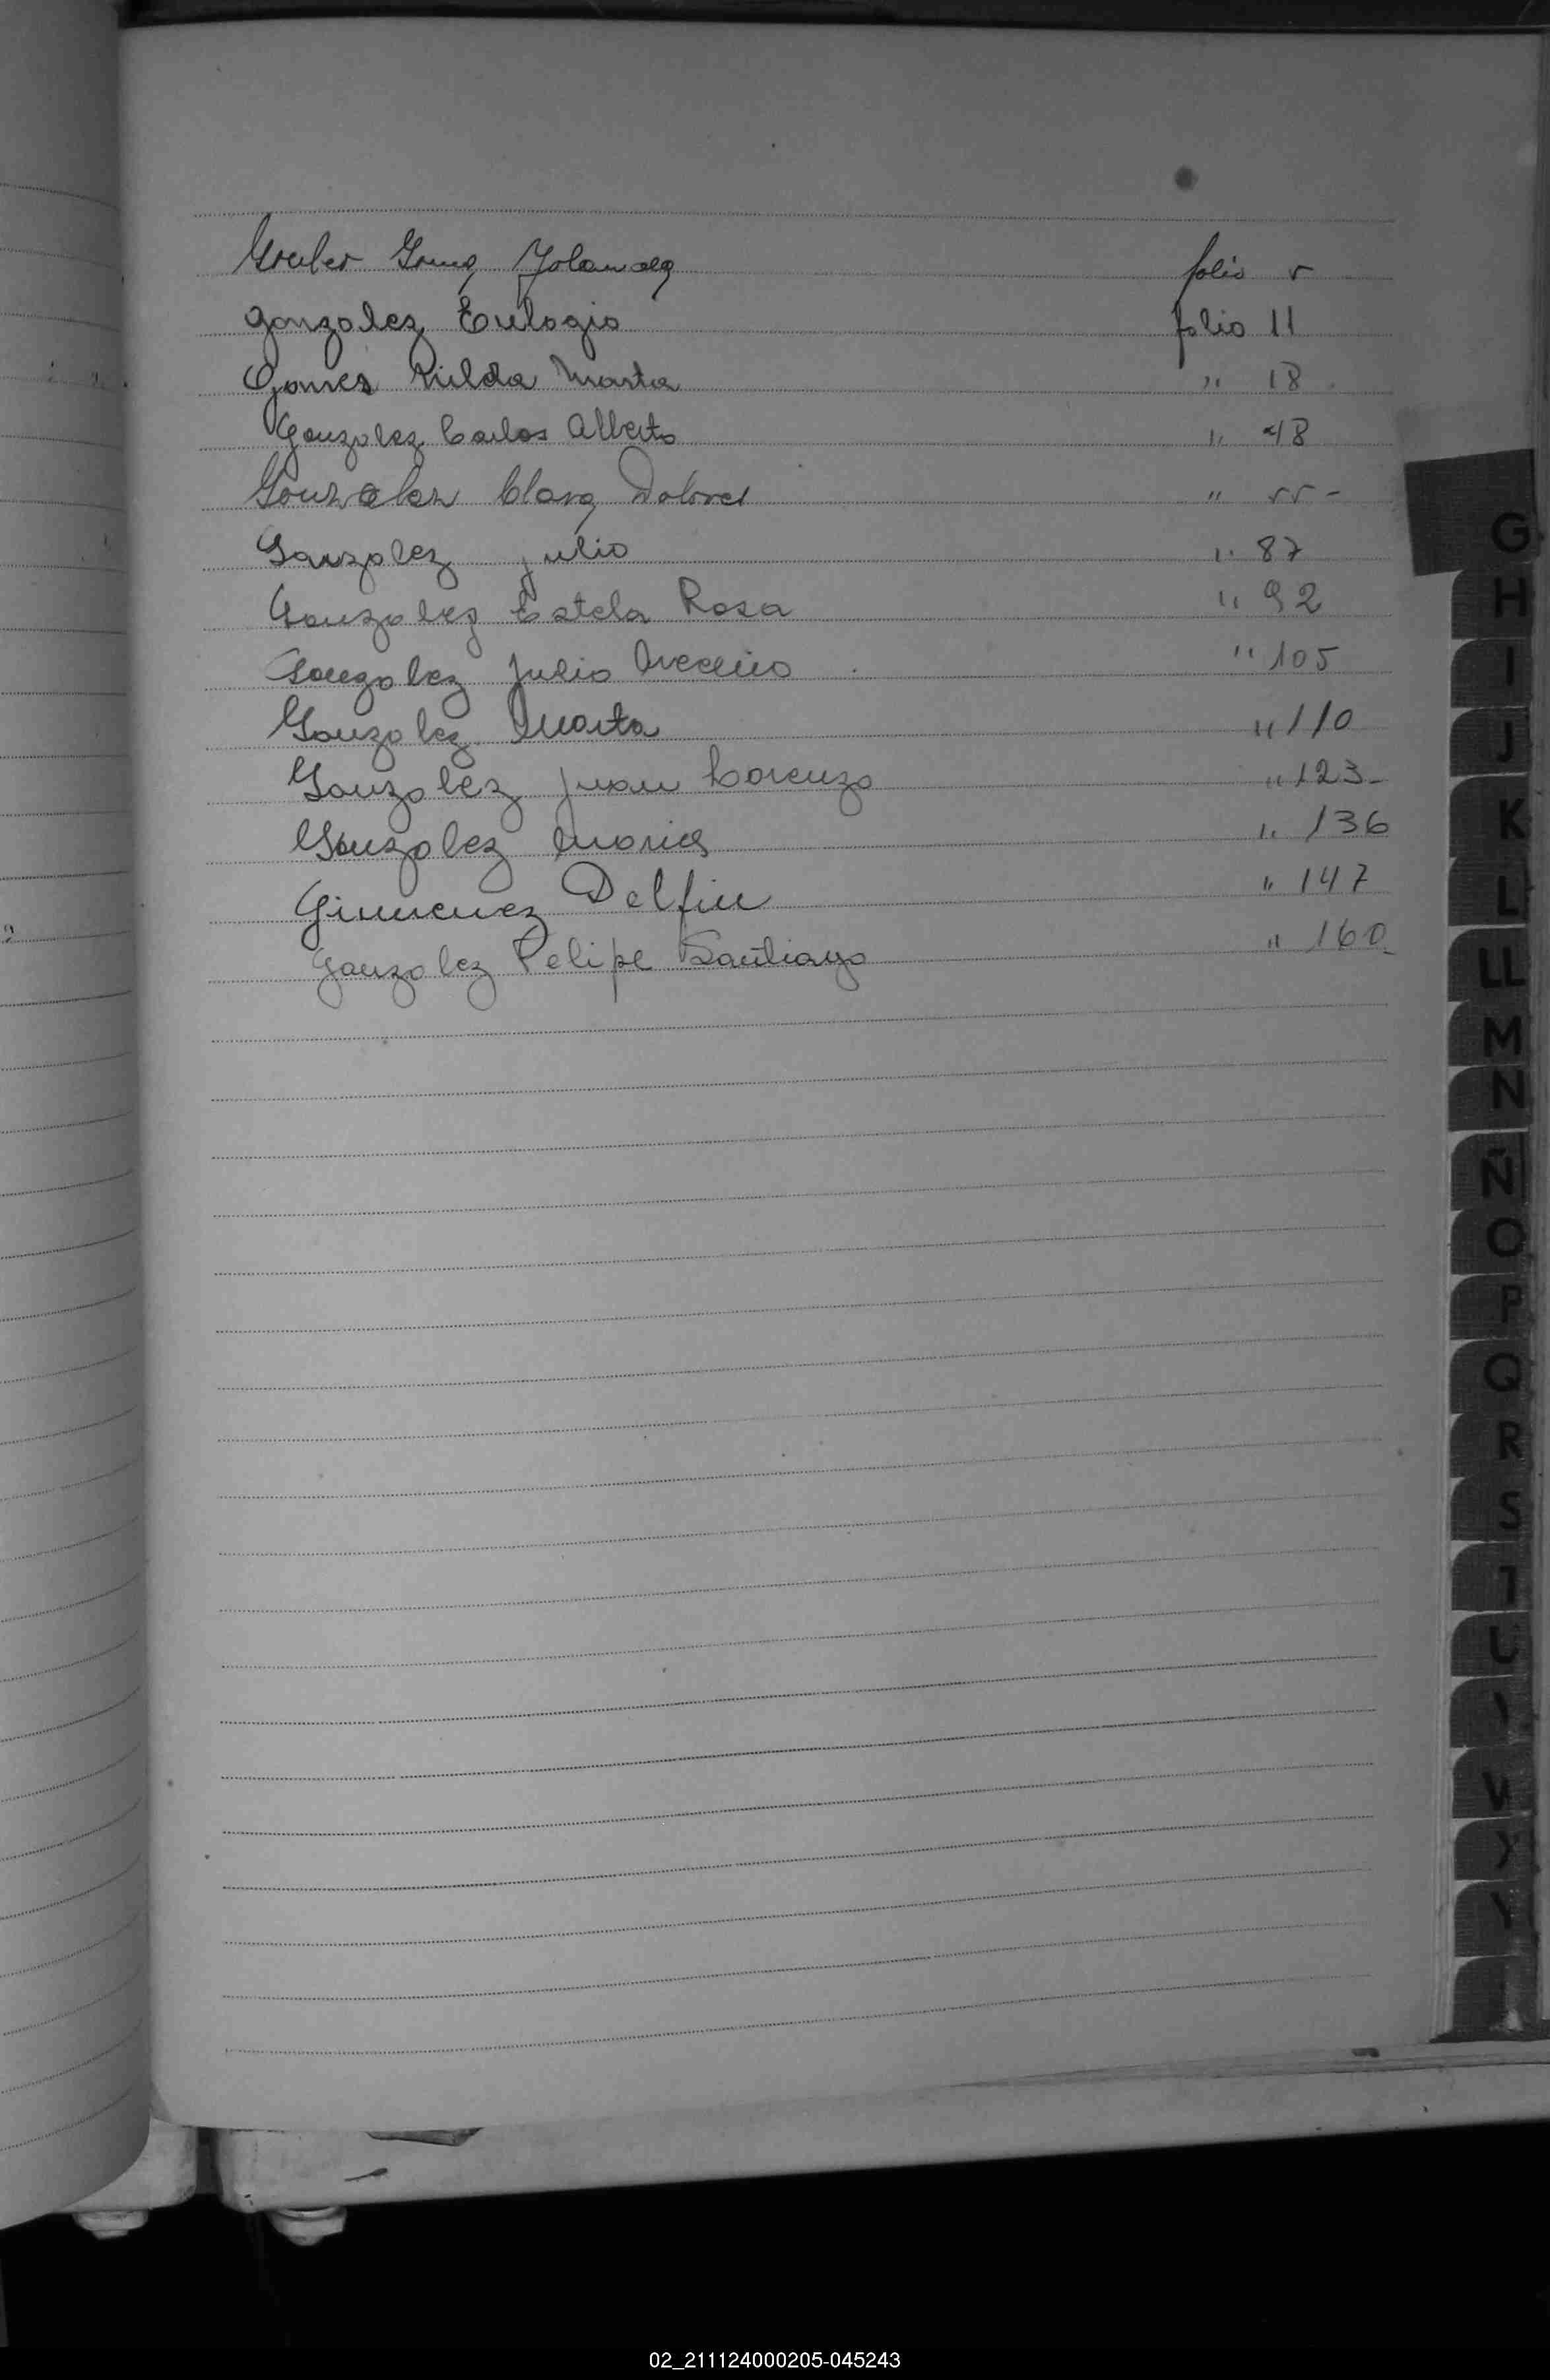 Gruber Irma Yolanda folio 5
Gonzalez Eulogio folio 11
Gomez Hilda Marta " 18
Gonzalez Carlos Alberto " 48
Gonzalez Clara Dolores " 55 -
Gonzalez Julio " 87
Gonzalez Estela Rosa " 92
Gonzalez Julio Avelino " 105
Gonzalez Marta " 110
Gonzalez Juan Lorenzo " 123-
Gonzalez Maria " 136
Gimenez Delfin " 147
Gonzalez Felipe Santiago " 160
G
H
I
J
K
L
LL
M
N
Ñ
O
P
Q
R
S
T
U
V
X
Y
02_211124000205-045243